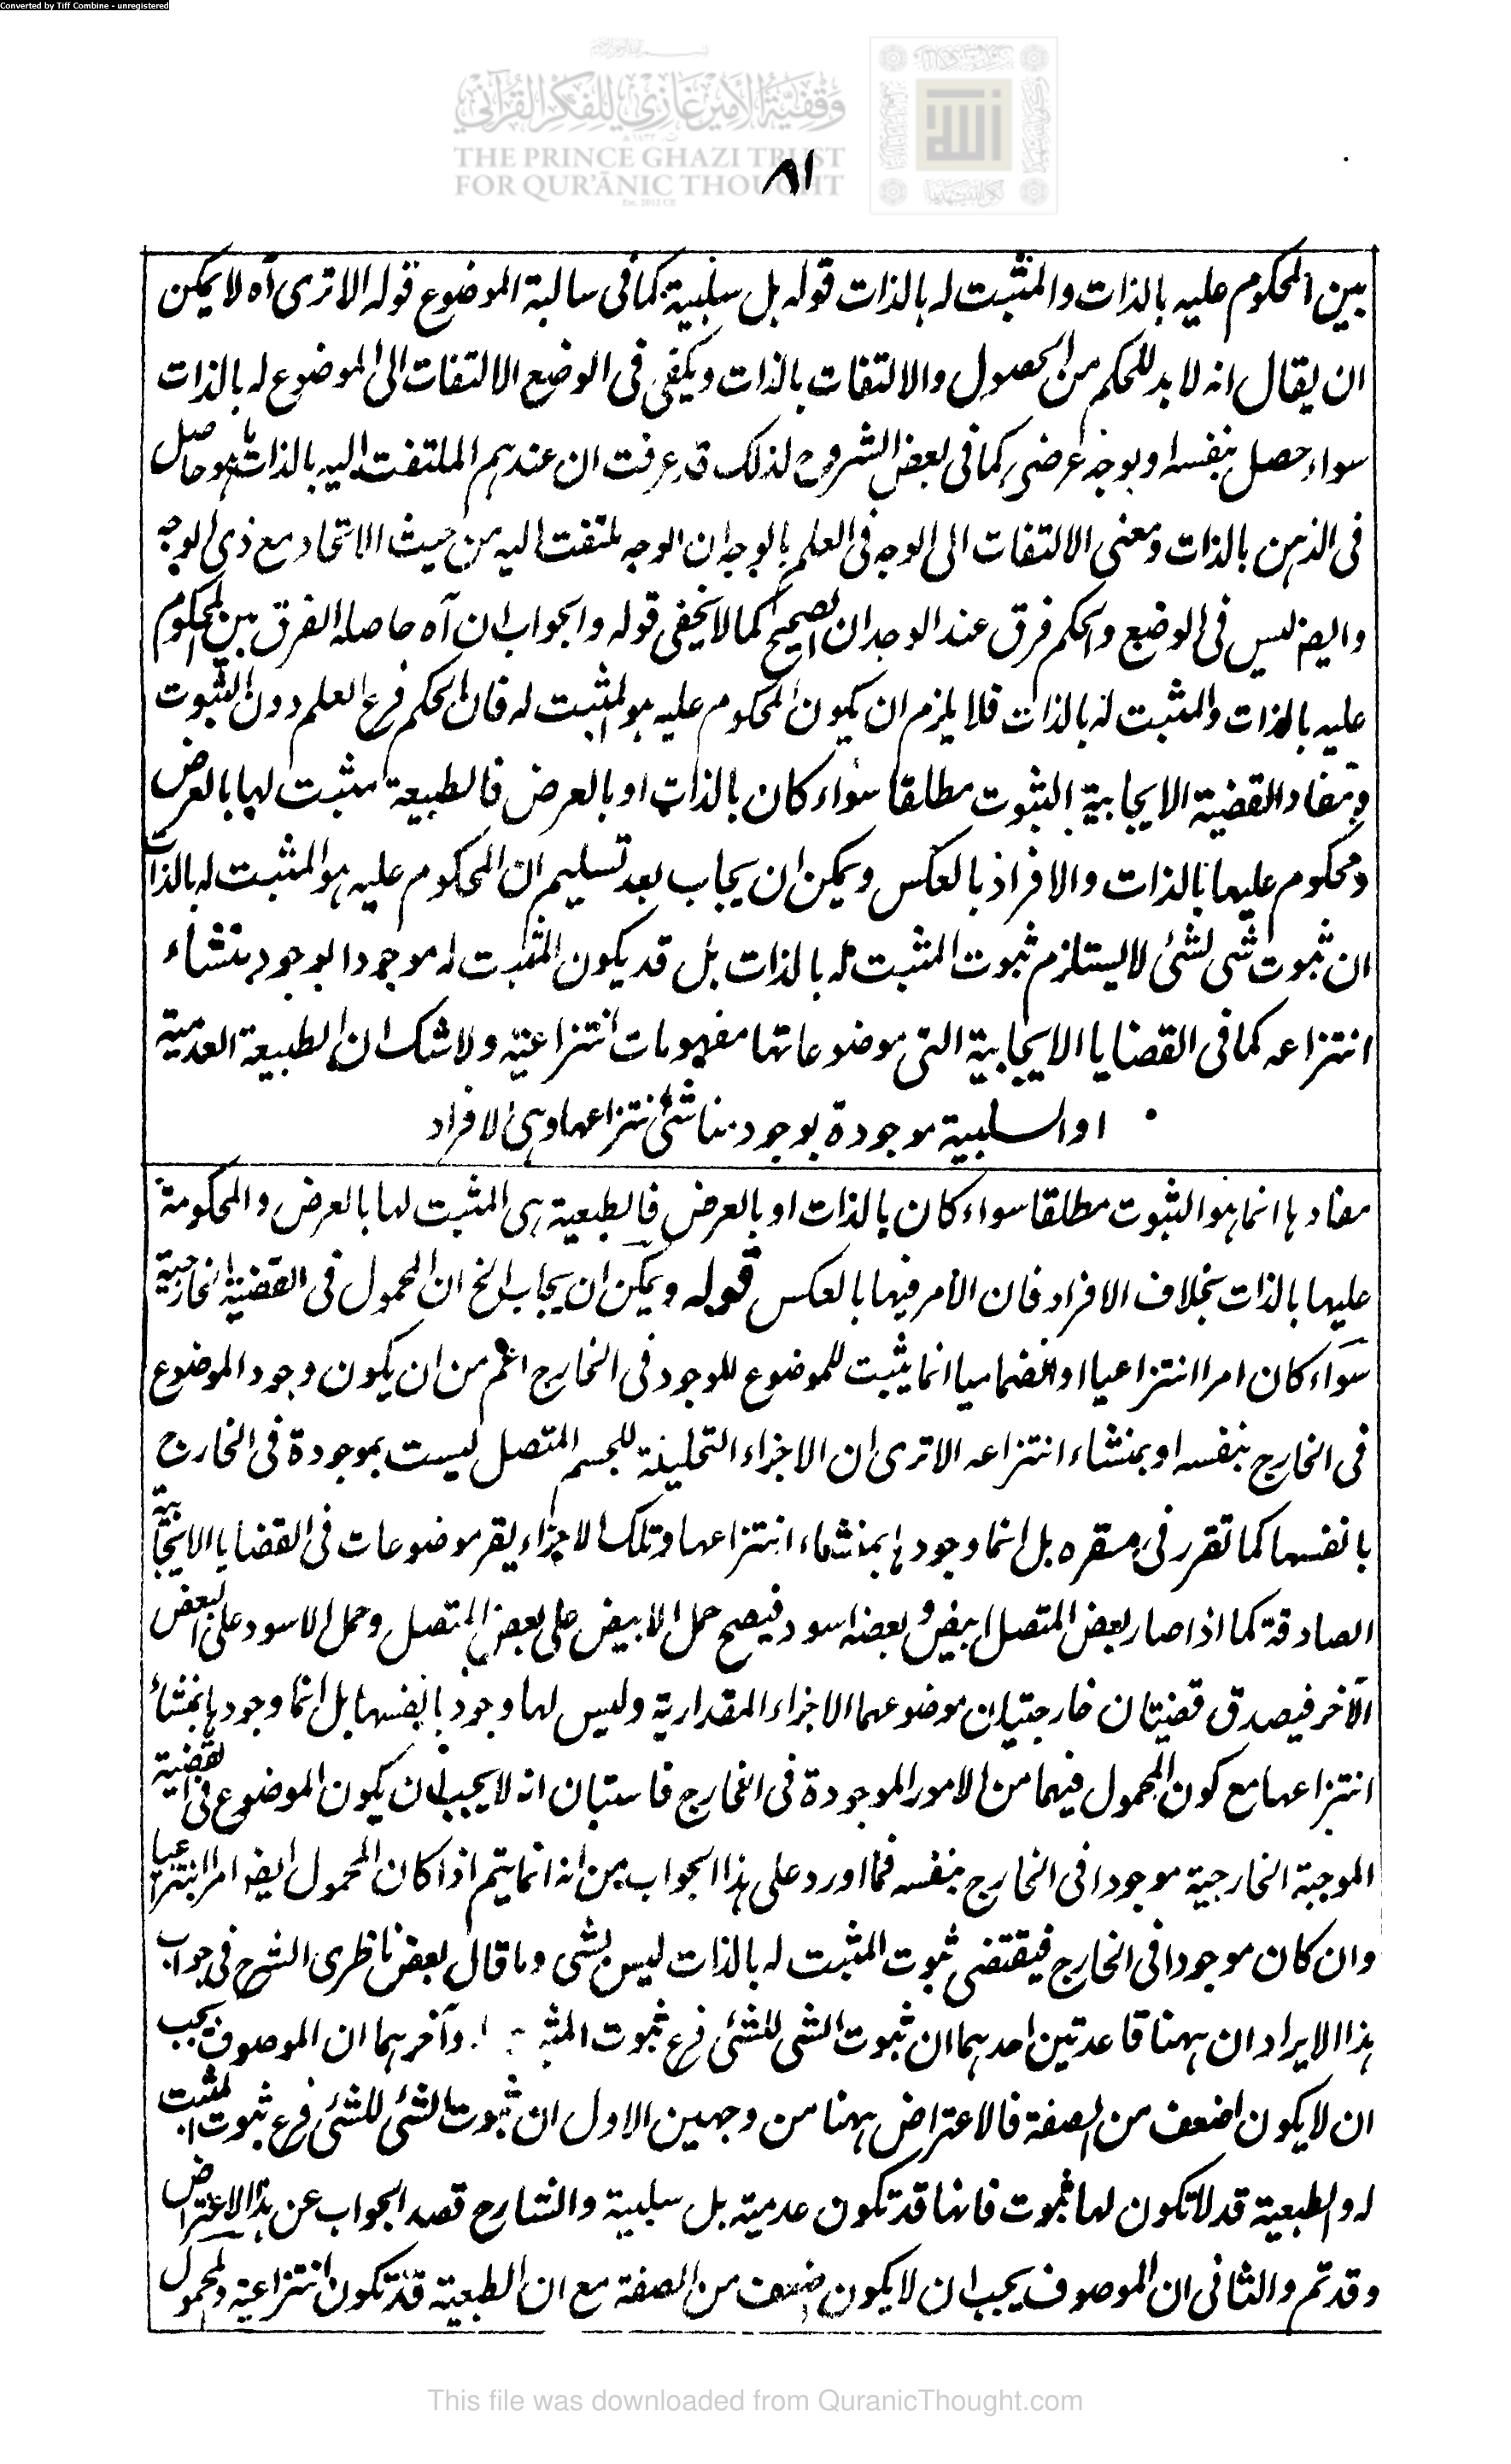 Converted by Tiff Combine - unregistered
وقفية الأمير غازي للفكر القرآني
THE PRINCE GHAZI TRUST
FOR QUR'ĀNIC THOUGHT
Est. 2012 CE
٨١
بين المحكوم عليه بالذات والمثبت له بالذات قوله بل سلبية كما فى سالبة الموضوع قوله الا ترى آه لا يمكن
ان يقال انه لا بد للحكم من الحصول والالتفات بالذات ويكفى فى الوضع الالتفات الى الموضوع له بالذات
سواء حصل بنفسه او بوجه عرضى كما فى بعض الشروح لذلك قد عرفت ان عندهم الملتفت اليه بالذات ما هو حاصل
فى الذهن بالذات ومعنى الالتفات الى الوجه فى العلم بالوجه ان الوجه ملتفت اليه من حيث الاتحاد مع ذى الوجه
وايضا ليس فى الوضع والحكم فرق عند الوجدان الصحيح كما لا يخفى قوله والجواب ان آه حاصله الفرق بين المحكوم
عليه بالذات والمثبت له بالذات فلا يلزم ان يكون المحكوم عليه هو المثبت له فان الحكم فرع العلم دون الثبوت
ومفاد القضية الايجابية الثبوت مطلقا سواء كان بالذات او بالعرض فالطبيعة مثبت لها بالعرض
ومحكوم عليها بالذات والافراد بالعكس ويمكن ان يجاب بعد تسليم ان المحكوم عليه هو المثبت له بالذات
ان ثبوت شى لشئ لا يستلزم ثبوت المثبت له بالذات بل قد يكون المثبت له موجودا بوجود منشاء
انتزاعه كما فى القضايا الايجابية التى موضوعاتها مفهومات انتزاعية ولا شك ان الطبيعة العدمية
او السلبية موجودة بوجود مناشئ انتزاعها وهى الافراد
مفادها انما هو الثبوت مطلقا سواء كان بالذات او بالعرض فالطبعية هى المثبت لها بالعرض والمحكومة
عليها بالذات بخلاف الافراد فان الامر فيها بالعكس قوله ويمكن ان يجاب الخ ان المحمول فى القضية الخارجية
سواء كان امرا انتزاعيا او انضماميا انما يثبت للموضوع للوجود فى الخارج اعم من ان يكون وجود الموضوع
فى الخارج بنفسه او بمنشاء انتزاعه الا ترى ان الاجزاء التحليلية للجسم المتصل ليست بموجودة فى الخارج
بانفسها كما تقرر فى مقره بل انما وجودها بمنشاء انتزاعها وتلك الاجزاء يقر موضوعات فى القضايا الايجابية
الصادقة كما اذا صار بعض المتصل ابيض و بعضه اسود فيصح حمل الابيض على بعض المتصل وحمل الاسود على البعض
الآخر فيصدق قضيتان خارجتيان موضوعهما الاجزاء المقدارية وليس لها وجود بانفسها بل انما وجودها بمنشاء
انتزاعها مع كون المحمول فيهما من الامور الموجودة فى الخارج فاستبان انه لا يجب ان يكون الموضوع فى القضية
الموجبة الخارجية موجودا فى الخارج بنفسه فما اورد على هذا الجواب من انه انما يتم اذا كان المحمول ايضا امرا انتزاعيا
وان كان موجودا فى الخارج فيقتضى ثبوت المثبت له بالذات ليس بشى وما قال بعض ناظرى الشرح فى جواب
هذا الايراد ان ههنا قاعدتين احدهما ان ثبوت الشى للشئ فرع ثبوت وآخرهما ان الموصوف يجب
ان لا يكون اضعف من الصفة فالاعتراض ههنا من وجهين الاول ان ثبوت الشئ للشئ فرع ثبوت المثبت
له والطبعية قد لا تكون لها ثبوت فانها قد تكون عدمية بل سلبية والشارح قصد الجواب عن هذا الاعتراض
وقد تم والثانى ان الموصوف يجب ان لا يكون اضعف من الصفة مع ان الطبعية قد تكون انتزاعية والمحمول
This file was downloaded from QuranicThought.com